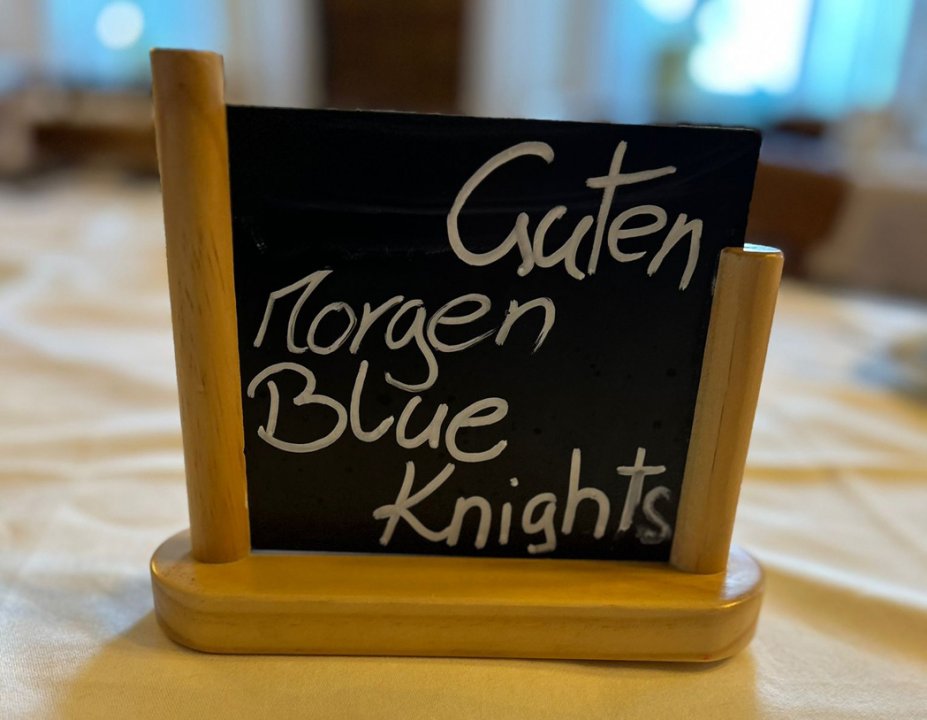 Guten
Morgen
Blue
Knights